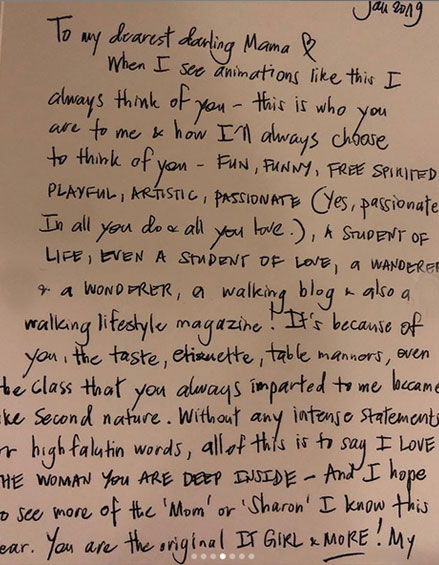 Jan 2019
To my dearest darling Mama ♡
When I see animations like this I
always think of you - this is who you
are to me & how I'll always choose
to think of you - FUN, FUNNY, FREE SPIRITED
PLAYFUL, ARTISTIC, PASSIONATE (Yes, passionate
In all you do & all you love.), A STUDENT OF
LIFE, EVEN A STUDENT OF LOVE, a WANDERER
& a WONDERER, a walking blog & also a
walking lifestyle magazine! It's because of
you, the taste, etiquette, table manners, even
the class that you always imparted to me became
like second nature. Without any intense statements
or highfalutin words, all of this is to say I LOVE
THE WOMAN YOU ARE DEEP INSIDE - And I hope
to see more of the 'Mom' or 'Sharon' I know this
year. You are the original IT GIRL & MORE! My